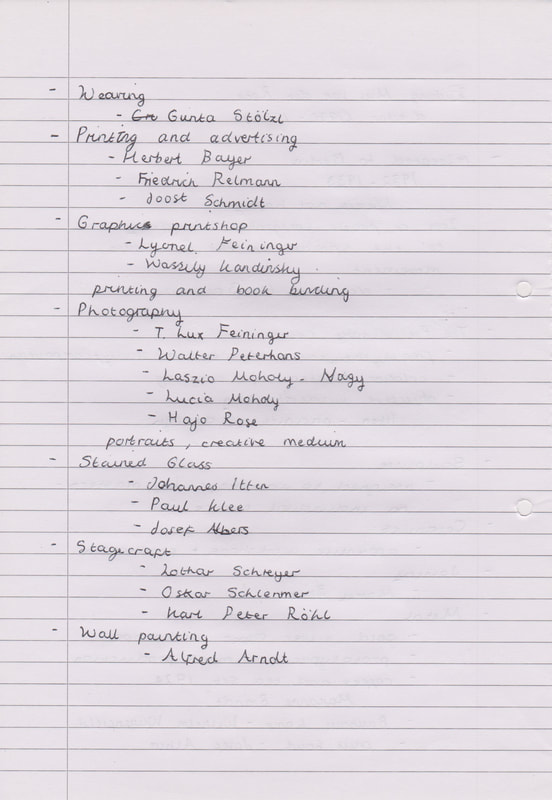 - Weaving
- Gunta Stölzl
- Printing and advertising
- Herbert Bayer
- Friedrich Reimann
- Joost Schmidt
- Graphics printshop
- Lyonel Feininger
- Wassily Kandinsky
printing and book binding
- Photography
- T. Lux Feininger
- Walter Peterhans
- Laszio Moholy - Nagy
- Lucia Moholy
- Hajo Rose
portraits, creative medium
- Stained Glass
- Johannes Itten
- Paul Klee
- Josef Albers
- Stagecraft
- Lothar Schreyer
- Oskar Schlemmer
- Karl Peter Röhl
- Wall painting
- Alfred Arndt